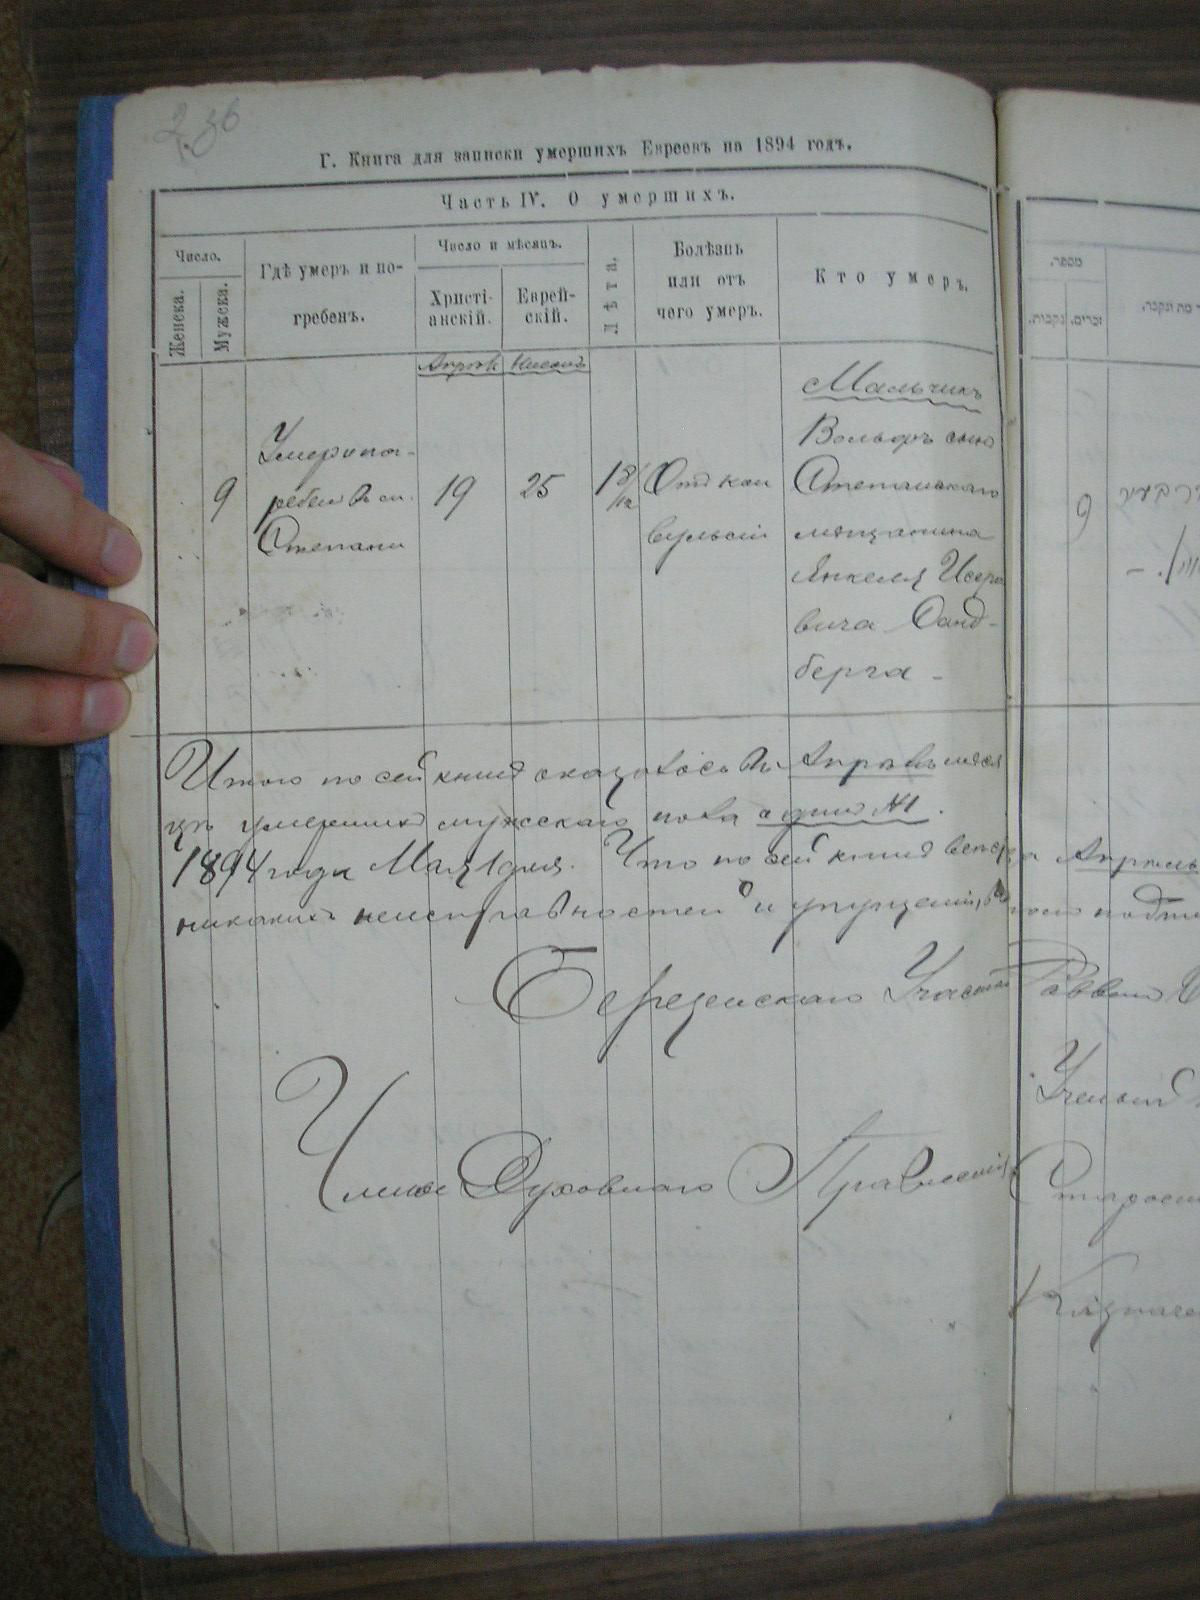 236
Г. Книга для записки умершихъ Евреевъ на 1894 годъ.
Часть IV. О умершихъ.
Число.
Женска.
Мужска.
Гдѣ умеръ и по-
гребенъ.
Число и мѣсяцъ.
Христі-
анскій.
Еврей-
скій.
Лѣта.
Болѣзнь
или отъ
чего умеръ.
Кто умеръ.
Апрѣль
Ниссанъ
9
Умеръ пог-
ребенъ въ м.
Степани
19
25
18/12
Отъ кон
вульсій
Мальчикъ
Вольфъ сынъ
Степаньскаго
мещанина
Янкеля Исеро
вича Санд-
берга -
Итого по сей книгѣ оказалось въ Апрѣлѣ меся
цѣ умершихъ мужскаго пола одинъ №1.
1894 года Мая 1 дня. Что по сей книгѣ
никакихъ неисправностей и упущеній,
Березенскаго Участка Раввинъ
Ученый
Члены Духовнаго Правленія
Старос
Казначе
מספר.
נקבות.
זכרים.
מת ונקבר.
9